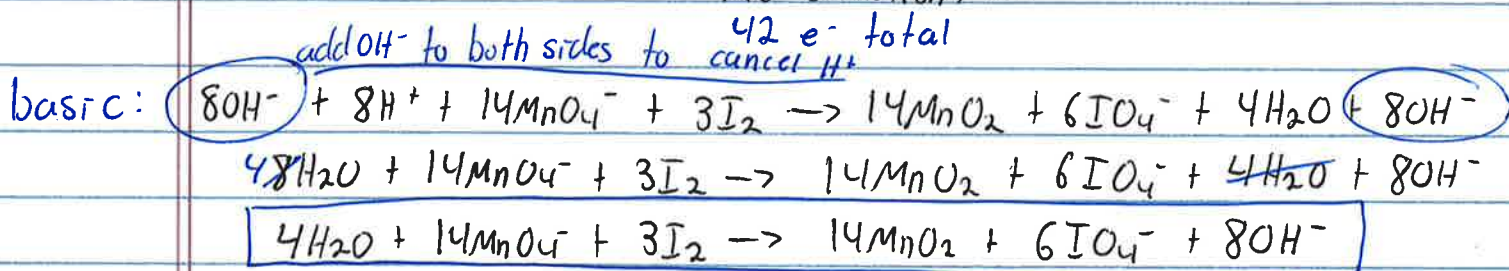 42 e⁻ total
add OH⁻ to both sides to cancel H⁺
basic: 8OH⁻ + 8H⁺ + 14MnO₄⁻ + 3I₂ → 14MnO₂ + 6IO₄⁻ + 4H₂O + 8OH⁻
4 8H₂O + 14MnO₄⁻ + 3I₂ → 14MnO₂ + 6IO₄⁻ + 4H₂O + 8OH⁻
4H₂O + 14MnO₄⁻ + 3I₂ → 14MnO₂ + 6IO₄⁻ + 8OH⁻